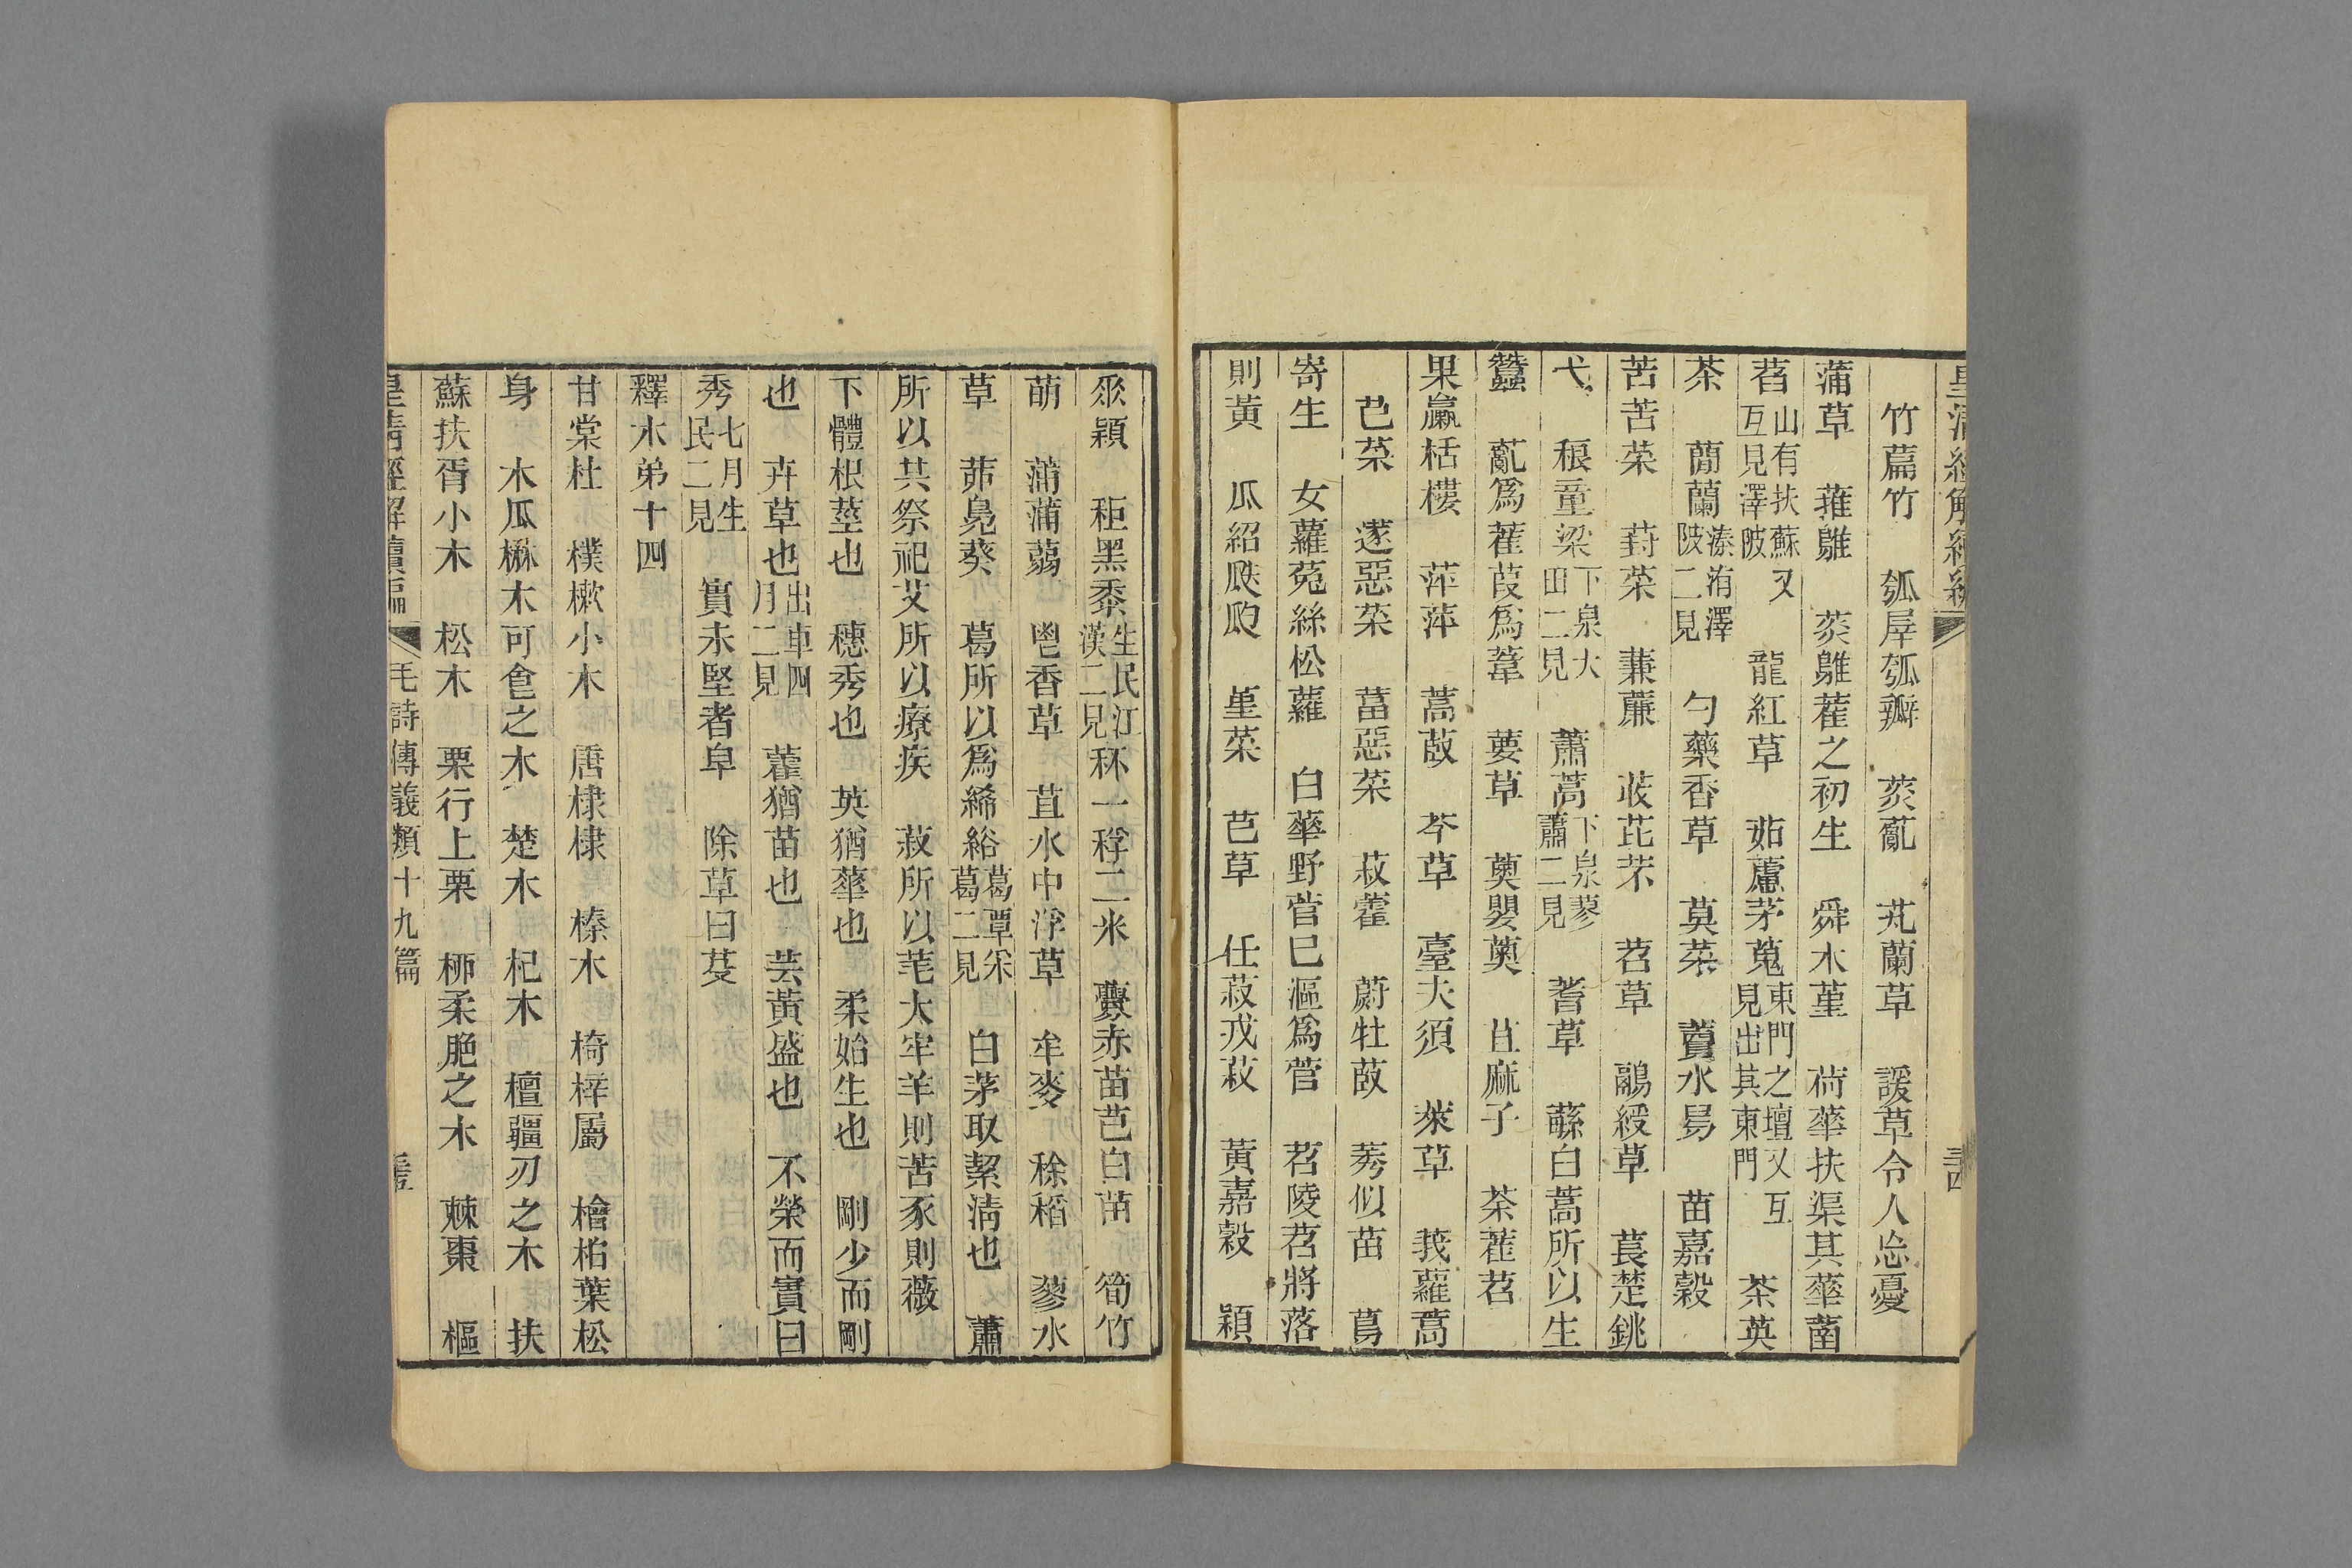 皇清經解續編
竹萹竹　瓠犀瓠瓣　菼薍　芄蘭草　諼草令人忘憂
蒲草　蓷鵻　菼鵻萑之初生　舜木堇　荷華扶渠其華菡
萏山有扶蘇又互見澤陂　龍紅草　茹藘茅蒐東門之墠又互見出其東門　荼英
荼　蕑蘭溱洧澤陂二見　勺藥香草　莫菜　藚水舃　苗嘉穀
苦苦菜　葑菜　蒹薕　荍芘芣　苕草　鷊綬草　萇楚銚
弋　稂童梁下泉大田二見　蕭蒿下泉蓼蕭二見　蓍草　蘩白蒿所以生
蠶　薍爲萑葭爲葦　葽草　薁蘡薁　苴麻子　荼萑苕
果臝栝樓　苹萍　蒿菣　芩草　臺夫須　萊草　莪蘿蒿
芑菜　蓫惡菜　葍惡菜　菽藿　蔚牡菣　莠似苗　蔦
寄生　女蘿菟絲松蘿　白華野菅已漚爲菅　苕陵苕將落
則黃　瓜紹瓞瓝　堇菜　芑草　任菽戎菽　黃嘉穀　穎
垂穎　秬黑黍生民江漢二見秠一稃二米　虋赤苗芑白苗　筍竹
萌　蒲蒲蒻　鬯香草　苴水中浮草　牟麥　稌稻　蓼水
草　茆鳧葵　葛所以爲絺綌葛覃采葛二見　白茅取絜清也　蕭
所以共祭祀艾所以療疾　菽所以芼大牢羊則苦豕則薇
下體根莖也　穗秀也　英猶華也　柔始生也　剛少而剛
也　卉草也出車四月二見　藿猶苗也　芸黃盛也　不榮而實曰
秀七月生民二見　實未堅者皁　除草曰芟
釋木弟十四
甘棠杜　樸樕小木　唐棣棣　榛木　椅梓屬　檜柏葉松
身　木瓜楙木可食之木　楚木　杞木　檀彊刃之木　扶
蘇扶胥小木　松木　栗行上栗　柳柔脃之木　棘棗　樞
皇清經解續編　毛詩傳義類十九篇